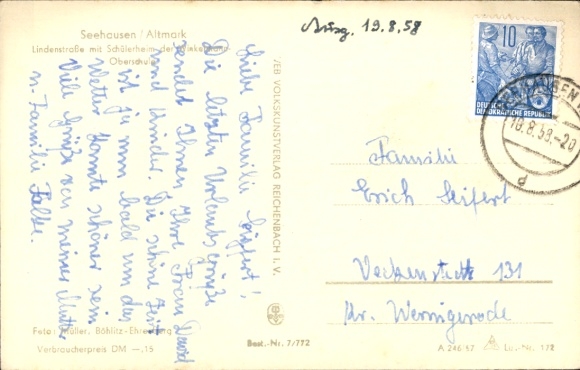 Seehausen / Altmark
Lindenstraße mit Schülerheim der Winckelmann-
Oberschule
Ausg. 19.8.58
10
DEUTSCHE
DEMOKRATISCHE REPUBLIK
SEEHAUSEN
18.8.58.-20
d
Liebe Familie Seifert!
Die letzten Urlaubsgrüße
sendet Ihnen Ihre Frau
und Kinder. Die schöne Zeit
ist ja nun bald um das
Wetter könnte schöner sein
Viele Grüße von meiner Mutter
u. Familie Falke.
VEB VOLKSKUNSTVERLAG REICHENBACH I. V.
Familie
Erich Seifert
Veckenstedt 131
Kr. Wernigerode
Foto: Müller, Böhlitz-Ehrenberg
Verbraucherpreis DM —,15
Best.-Nr. 7/772
A 246/57
Liz.-Nr. 172